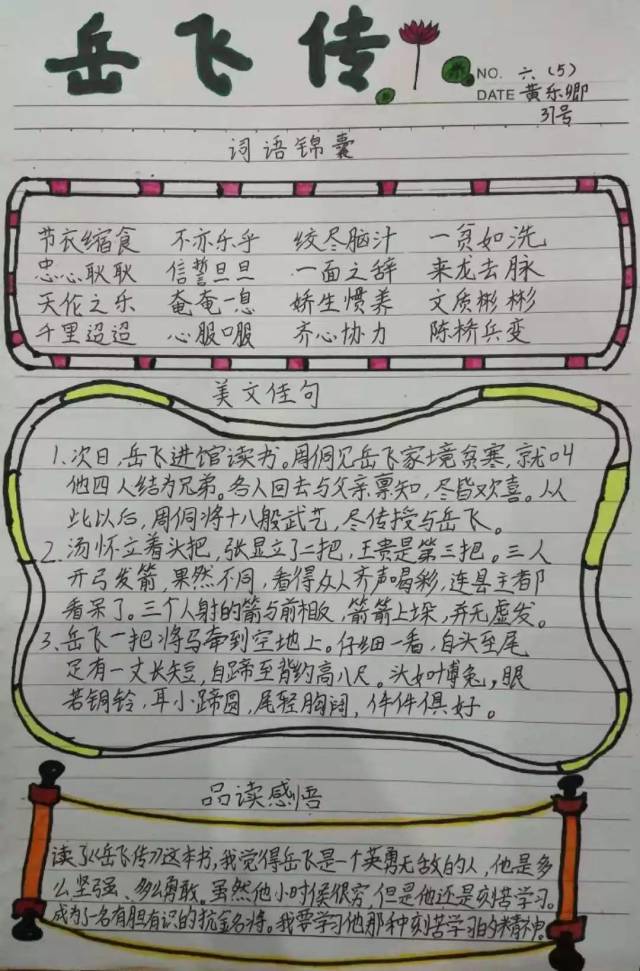 岳飞传
NO. 六(5)
DATE 黄乐卿
31号
词语锦囊
节衣缩食 不亦乐乎 绞尽脑汁 一贫如洗
忠心耿耿 信誓旦旦 一面之辞 来龙去脉
天伦之乐 奄奄一息 娇生惯养 文质彬彬
千里迢迢 心服口服 齐心协力 陈桥兵变
美文佳句
1.次日,岳飞进馆读书。周侗见岳飞家境贫寒,就叫
他四人结为兄弟。各人回去与父亲禀知,尽皆欢喜。从
此以后,周侗将十八般武艺,尽传授与岳飞。
2.汤怀立着头把,张显立了二把,王贵是第三把。三人
开弓发箭,果然不同,看得众人齐声喝彩,连县主都
看呆了。三个人射的箭与前相反,箭箭上垛,并无虚发。
3.岳飞一把将马牵到空地上。仔细一看,自头至尾
足有一丈长短,自蹄至背约高八尺。头如博兔,眼
若铜铃,耳小蹄圆,尾轻胸阔,件件俱好。
品读感悟
读了《岳飞传》这本书,我觉得岳飞是一个英勇无敌的人,他是多
么坚强、多么勇敢。虽然他小时侯很穷,但是他还是刻苦学习。
成为了一名有胆有识的抗金名将。我要学习他那种刻苦学习的精神。